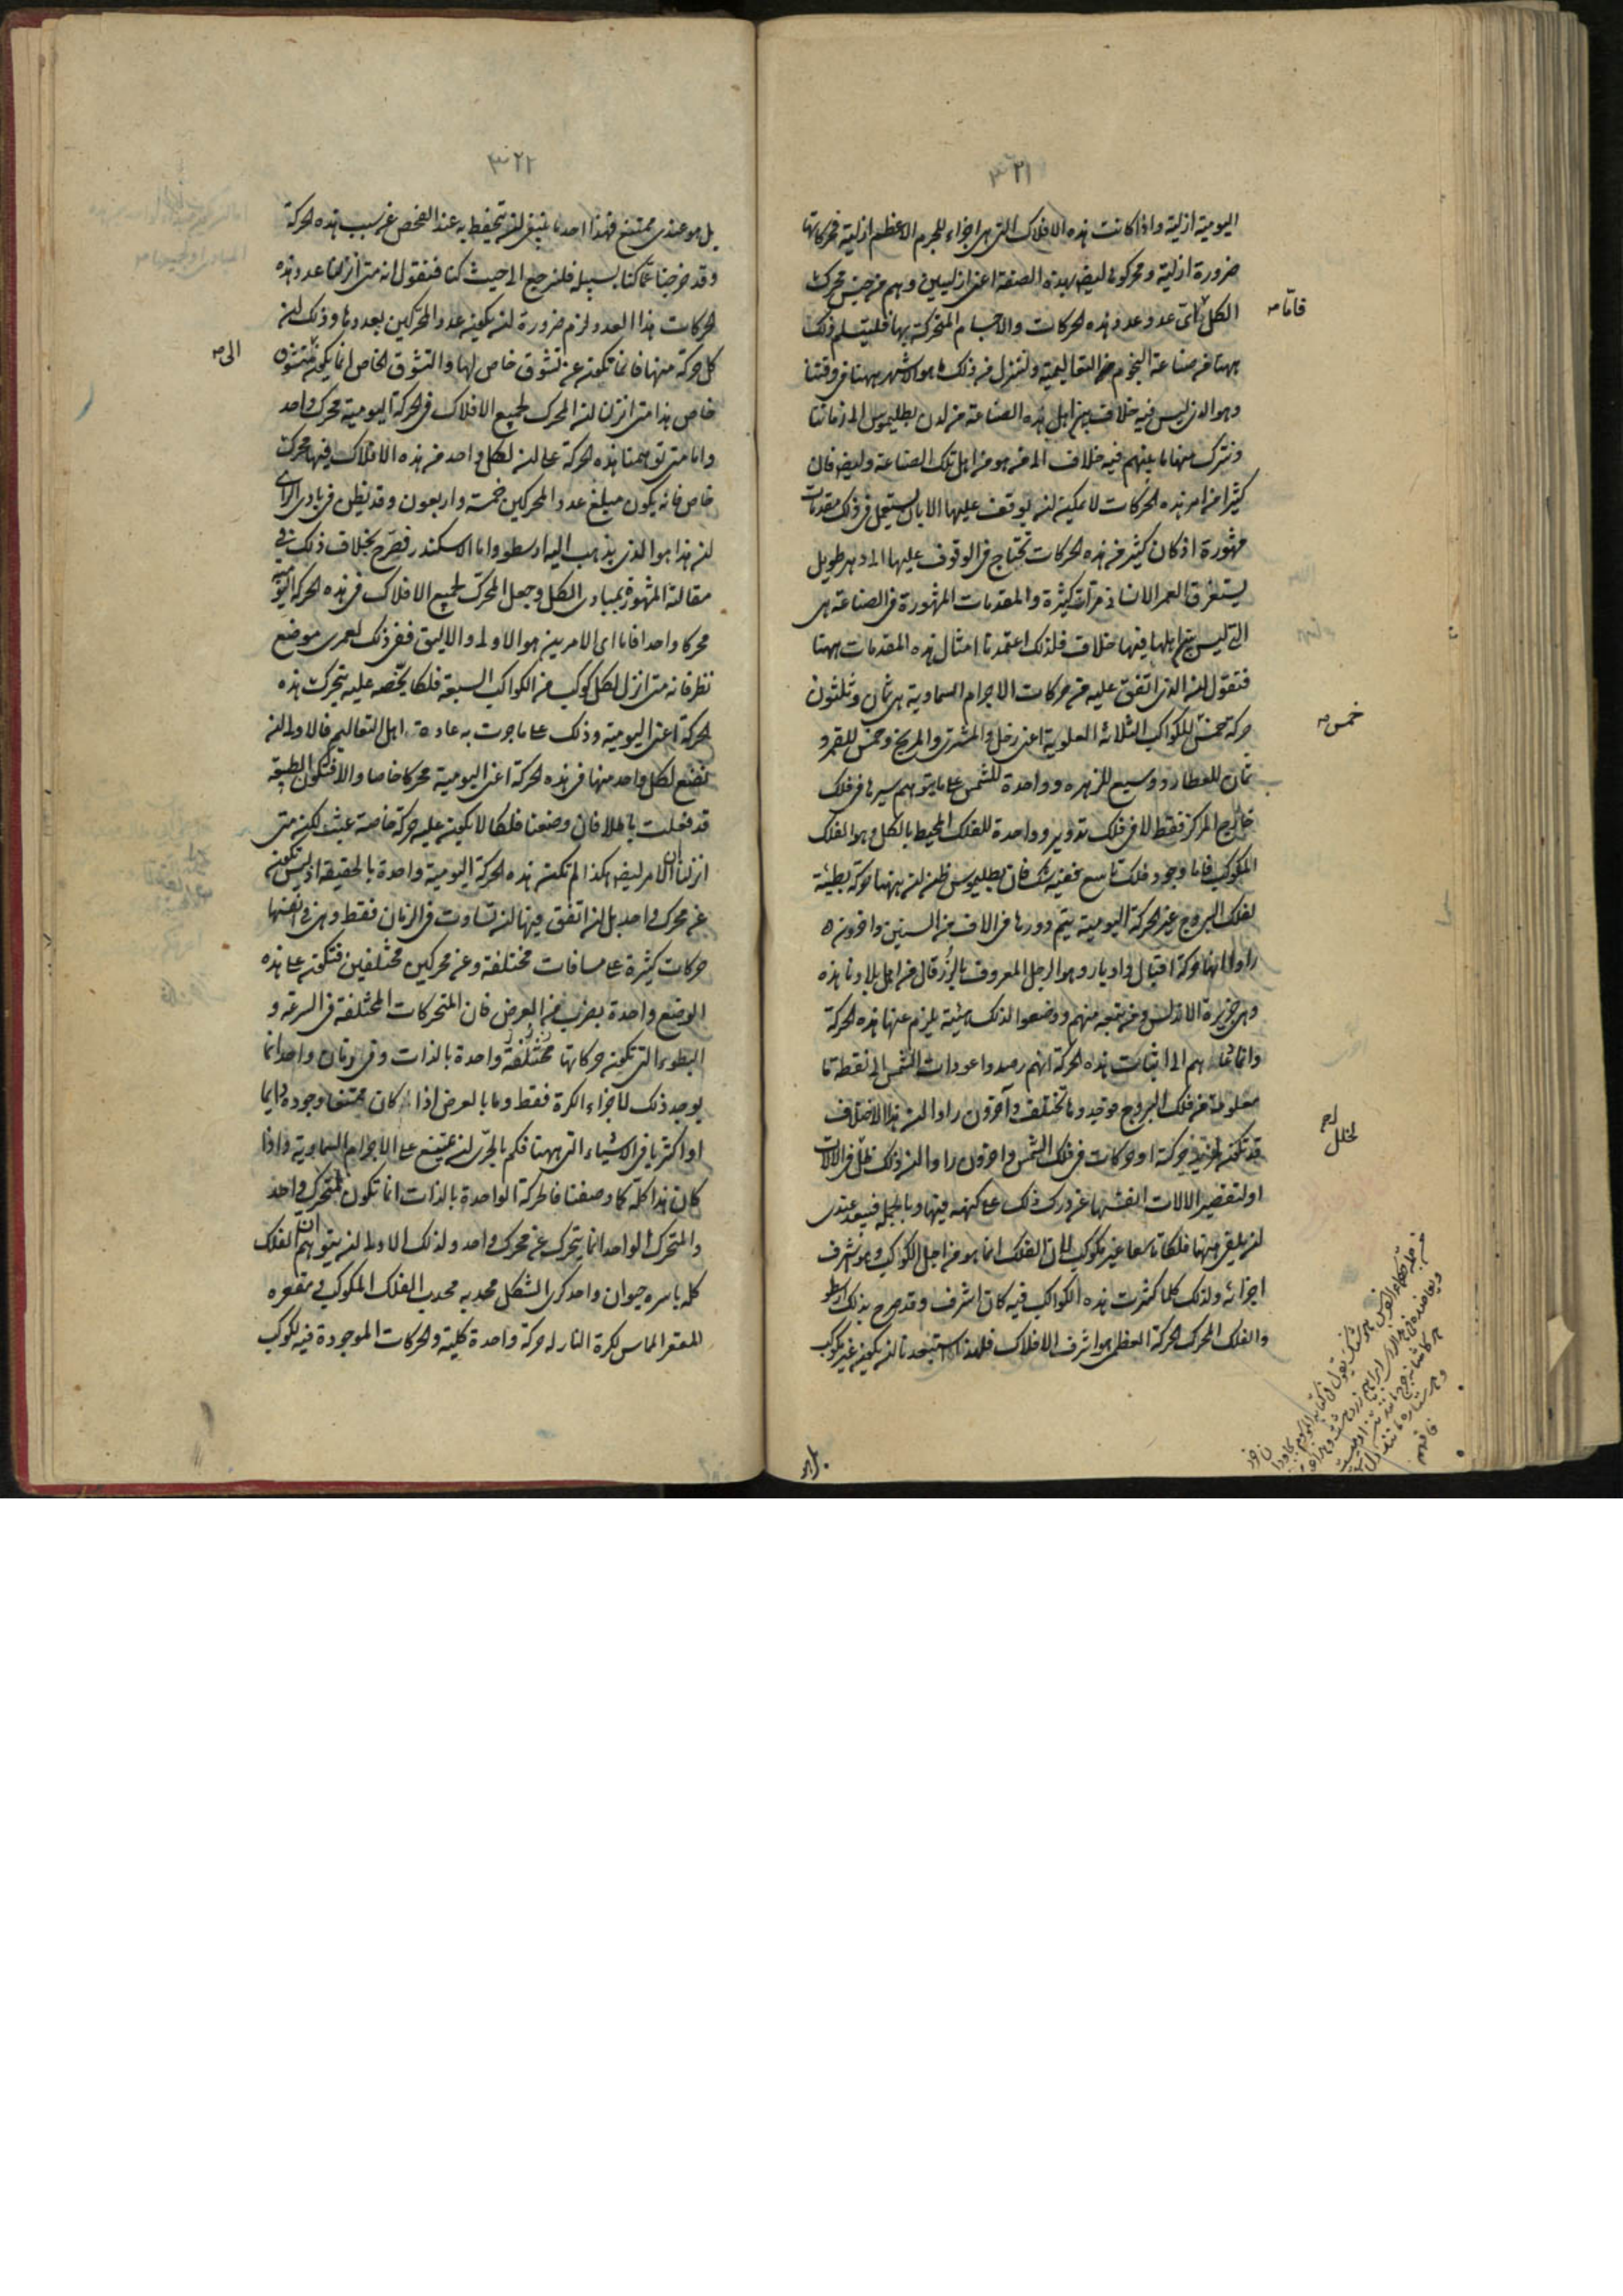 ٣٢١
اليومية ازلية واذا كانت هذه الافلاك التى هى اجزاء للجرم الاعظم ازلية فحركاتها
ضرورة ازلية ومحركوها ايضا بهذه الصفة اعنى ازليين وهم من جنس محرك
الكل اى عدد عدد هذه الحركات والاجسام المتحركة بها فليتسلم ذلك
فامّا
ههنا من صناعة النجوم التعاليمية ولننزل من ذلك ما هو الاشهر ههنا فى وقتنا
وهو الذى ليس فيه خلاف بين اهل هذه الصناعة من لدن بطليموس الى زماننا
ونترك منها ما بينهم فيه خلاف الى من هو من اهل تلك الصناعة وايضا فان
كثيرا من امر هذه الحركات لا يمكن ان يوقف عليها الا بان يستعمل فى ذلك مقدمات
مشهورة اذ كان كثير من هذه الحركات تحتاج فى الوقوف عليها الى دهر طويل
يستغرق العمر الانسانى مرات كثيرة والمقدمات المشهورة فى الصناعة هى
التى ليس بين اهلها فيها خلاف فلذلك اعتمدنا امثال هذه المقدمات ههنا
فنقول ان الذى اتفق عليه من حركات الاجرام السماوية هى ثمان وثلثون
حركة خمس للكواكب الثلاثة العلوية اعنى زحل والمشترى والمريخ وخمس للقمر و
خمس
ثمان للعطارد وسبع للزهره وواحدة للشمس على ما يتوهم سيرها فى فلك
خارج المركز فقط لا فى فلك تدوير وواحدة للفلك المحيط بالكل وهو الفلك
المكوكب فاما وجود فلك تاسع ففيه شك فان بطليموس ظن ان ههنا حركة بطيئة
لفلك البروج غير الحركة اليومية يتم دورها فى الاف من السنين واخرون
راوا انها حركة اقبال وادبار وهو الرجل المعروف بالزرقال من اهل بلادنا هذه
وهى جزيرة الاندلس ومن تبعه منهم ووضعوا لذلك هيئة يلزم عنها هذه الحركة
وانما دعاهم الى اثبات هذه الحركة انهم رصدوا عودات الشمس الى نقطة ما
معلومة من فلك البروج فوجدوها تختلف وآخرون راوا ان هذا الاختلاف
قد تكون لمزيد حركة او حركات فى فلك الشمس واخرون راوا ان ذلك خلل فى الالات
لخلل
او لتقصير الالات انفسها عن درك ذلك على كنهه فيها وبالجملة فبعيد عندى
ان يلفى ههنا فلكا تاسعا غير مكوكب لان الفلك انما هو من اجل الكواكب وهو اشرف
اجزائه ولذلك كلما كثرت هذه الكواكب فيه كان اشرف وقد صرح بذلك ارسطو
والفلك المحرك الحركة العظمى هو اشرف الافلاك فلهذا استبعدنا ان يكون غير مكوكب
بل هو
٣٢٢
بل هو عندى ممتنع فهذا احد ما ينبغى ان يتحفظ به عند الفحص عن سبب هذه الحركة
وقد خرجنا عمّا كنا بسبيله فلنرجع الى حيث كنا فنقول انه متى انزلنا عدد هذه
الحركات هذا العدد لزم ضرورة ان يكون عدد المحركين بعددها وذلك ان
كل حركة منها فانما تكون عن تشوق خاص لها والتشوق الخاص انما يكون لمتشوق
الى
خاص هذا متى انزلنا ان المحرك لجميع الافلاك فى الحركة اليومية محرك واحد
واما متى توهمنا هذه الحركة على ان لكل واحد من هذه الافلاك فيها محرك
خاص فانه يكون مبلغ عدد المحركين خمسة واربعون وقد يظن فى بادى الراى
ان هذا هو الذى يذهب اليه ارسطو واما الاسكندر فصرح بخلاف ذلك فى
مقالته المشهورة بمبادى الكل وجعل المحرك لجميع الافلاك فى هذه الحركة اليومية
محركا واحدا فاما اى الامرين هو الاولى والاليق ففى ذلك لعمرى موضع
نظر فانه متى انزل لكل كوكب من الكواكب السبعة فلكا يخصه عليه يتحرك هذه
الحركة اعنى اليومية وذلك على ما جرت به عادة اهل التعاليم فالاولى ان
نضع لكل واحد منها فى هذه الحركة اعنى اليومية محركا خاصا والا فتكون الطبيعة
قد فعلت باطلا فان وضعنا فلكا لا تكون عليه حركة خاصة عبث لكن متى
انزلنا ان الامر ايضا هكذا لم تكن هذه الحركة اليومية واحدة بالحقيقة اذ ليس تكون
عن محرك واحد بل ان اتفق فيها ان تساوت فى الزمان فقط وهى فى انفسها
حركات كثيرة على مسافات مختلفة وعن محركين مختلفين فتكون على هذه
الوضع واحدة بضرب من العرض فان المتحركات المختلفة فى السرعة و
البطوء التى تكون حركاتها مختلفة واحدة بالذات وفى زمان واحد انما
يوجد ذلك لاجزاء الكرة فقط وما بالعرض اذا كان ممتنعا وجوده دايما
او اكثريا فى الاشياء التى ههنا فكم بالحرى ان يمتنع على الاجرام السماوية واذا
كان هذا كله كما وصفنا فالحركة الواحدة بالذات انما تكون لمتحرك واحد
والمتحرك الواحد انما يتحرك عن محرك واحد ولذلك الاولى ان يتوهم ان الفلك
كله باسره حيوان واحد كرى الشكل محدبه محدب الفلك المكوكب ومقعره
المقعر الماس لكرة النار له حركة واحدة كلية والحركات الموجودة فيه لكوكب